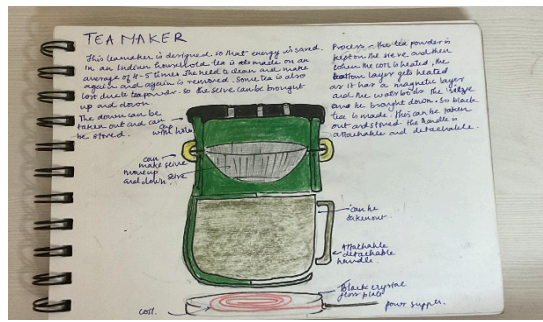 TEA MAKER
This teamaker is designed so that energy is saved.
In an Indian household tea is made on an
average of 4-5 times. The need to clean and make
again and again is removed. Some tea is also
lost due to tea powder. So the seive can be brought
up and down.
The down can be
taken out and can
be stored.
Process - the tea powder is
kept on the seive and then
when the coil is heated, the
bottom layer gets heated
as it has a magnetic layer
and the water boils the
and be brought down. So black
tea is made. This can be taken
out and stored. The handle is
attachable and detachable.
can
make seive
move up
and down.
seive
can be
takenout
Attachable
detachable
handle.
Black crystal
glass plate
coil.